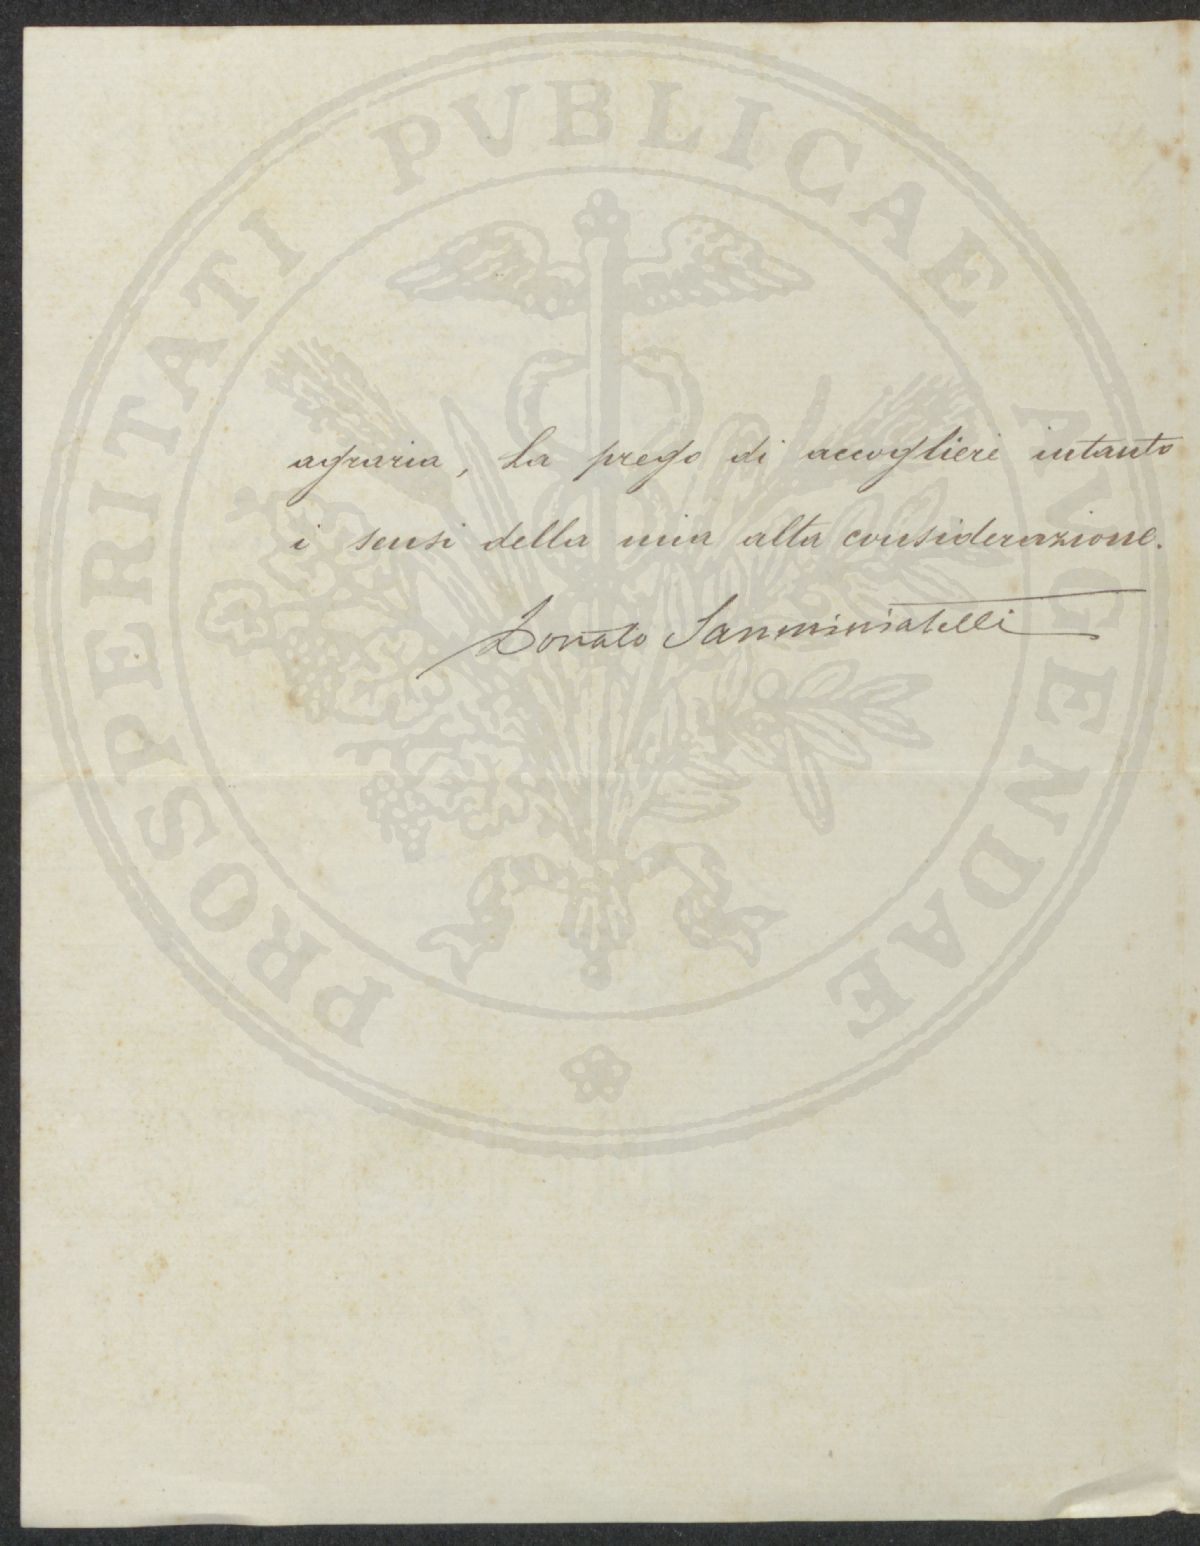 PROSPERITATI PVBLICAE AVGENDAE
agraria, La prego di accogliere intanto
i sensi della mia alta considerazione.
Donato Sanminiatelli